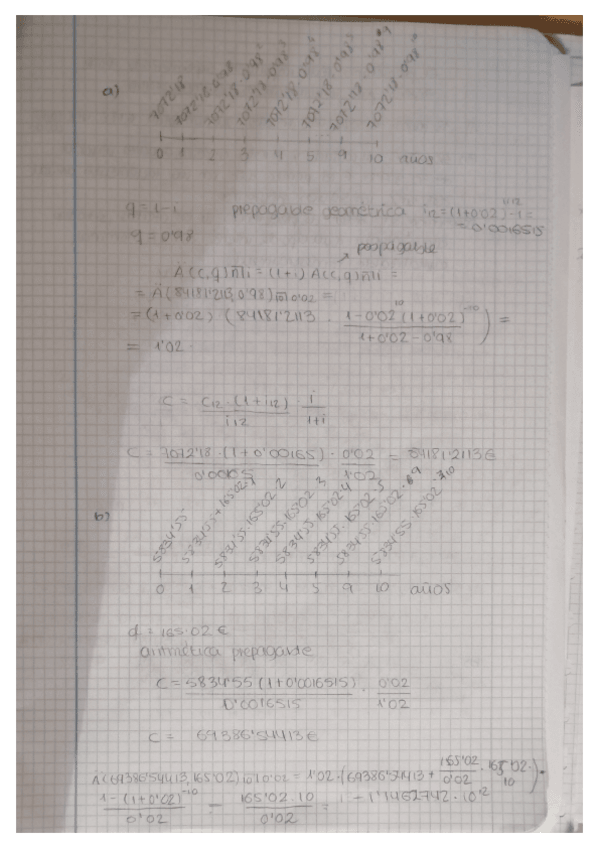 a)
7072'18 7072'18·0'98 7072'18·0'98² 7072'18·0'98³ 7072'18·0'98⁴ 7072'18·0'98⁵ 7072'18·0'98⁹ 7072'18·0'98¹⁰
0 1 2 3 4 5 9 10 años
q = 1-i prepagable geométrica i12 = (1+0'02)^1/12 - 1 =
q = 0'98 = 0'0016515
A(c,q)n̅|i = (1+i) A(c,q)n̅|i =
= Ä(84181'2113, 0'98)10̅|0'02 =
= (1+0'02) · (84181'2113 · 1-0'02¹⁰(1+0'02)⁻¹⁰ / 1+0'02-0'98) =
= 1'02 ·
C = C12 · (1+i12) / i12 · i / 1+i
C = 7072'18 · (1+0'00165) / · 0'02 / 1'02 = 84181'2113€
b)
5834'55 5834'55+165'02·1 5834'55·165'02·2 5834'55·165'02·3 5834'55·165'02·4 5834'55·165'02·5 5834'55·165'02·9 5834'55·165'02·10
0 1 2 3 4 5 9 10 años
d = 165'02 €
aritmética prepagable
C = 5834'55 (1+0'0016515) / 0'0016515 · 0'02 / 1'02
C = 69386'54413€
Ä(69386'54413, 165'02)10̅|0'02 = 1'02·(69386'54413 + 165'02 / 0'02 · 165'02 · 10) ·
1-(1+0'02)⁻¹⁰ / 0'02 - 165'02·10 / 0'02 = 1-1'1462742·10¹²